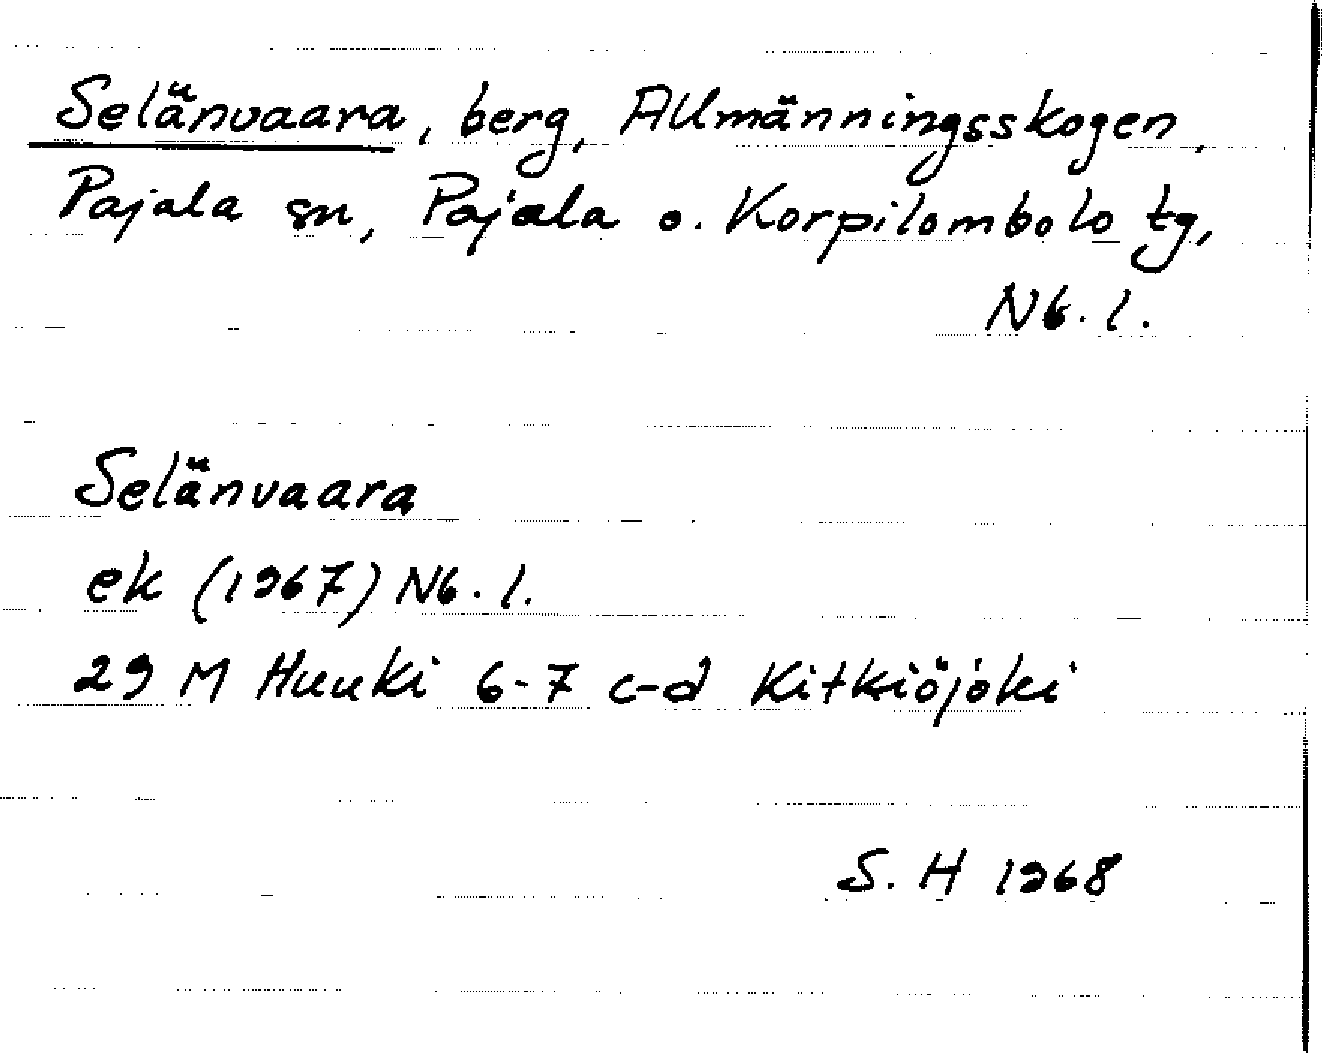 Selänvaara, berg, Allmänningsskogen,
Pajala sn, Pajala o. Korpilombolo tg,
Nb. l.
Selänvaara
ek (1967) Nb. l.
29 M Huuki 6-7 c-d Kitkiöjoki
S. H 1968